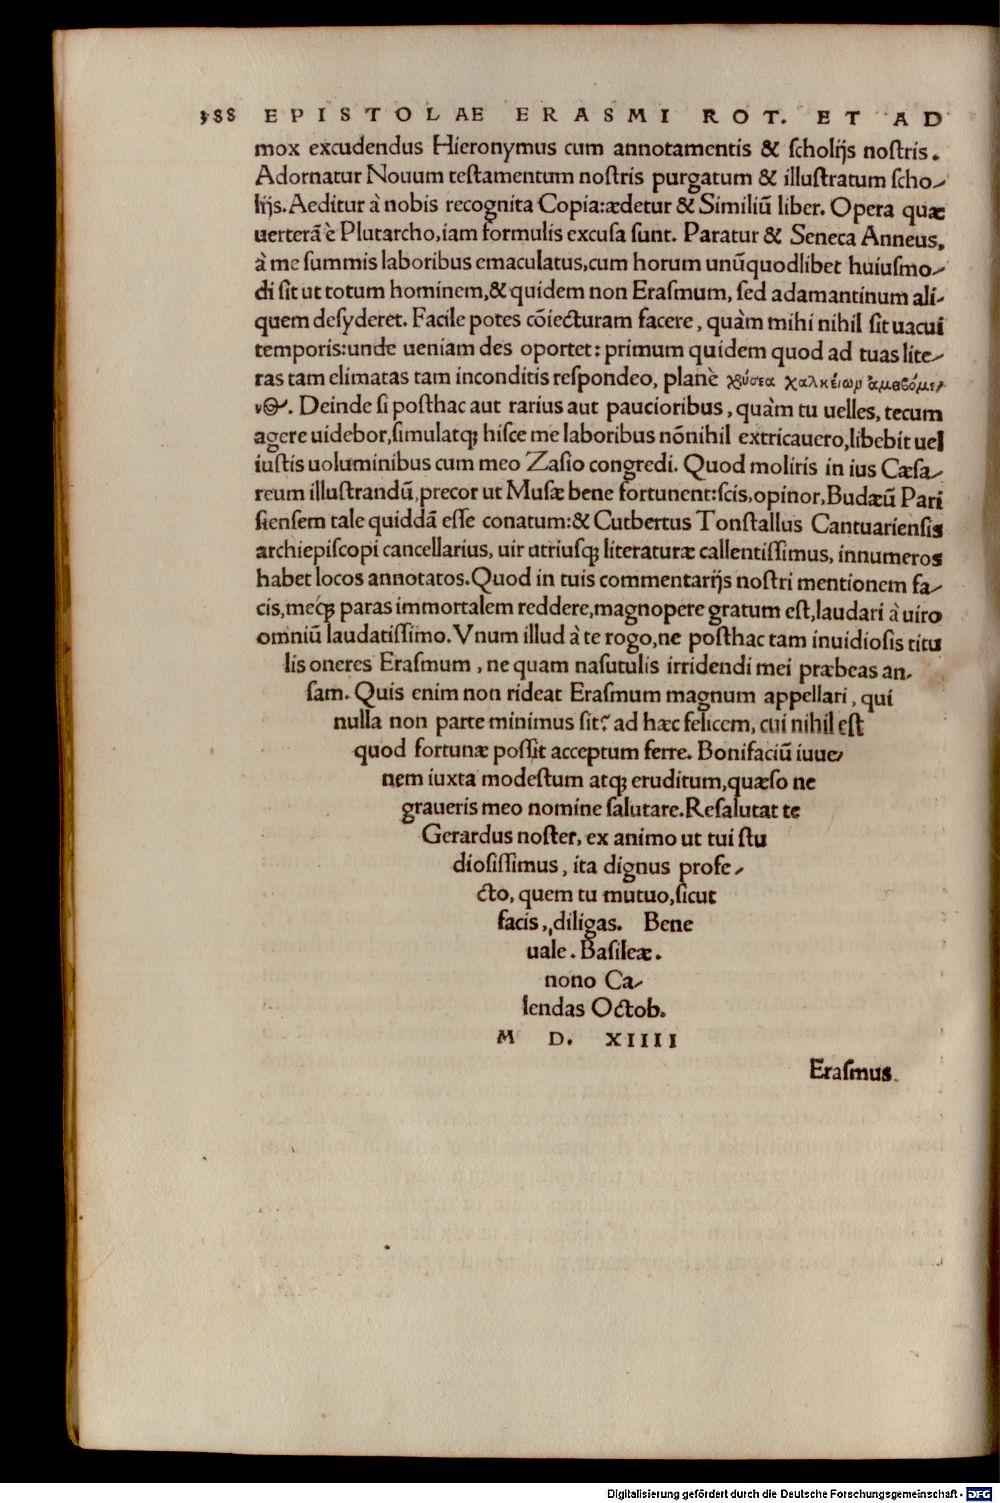 388 EPISTOLAE ERASMI ROT. ET AD
mox excudendus Hieronymus cum annotamentis & ſcholijs noſtris.
Adornatur Nouum teſtamentum noſtris purgatum & illuſtratum ſcho-
lijs. Aeditur à nobis recognita Copia: ædetur & Similiū liber. Opera quæ
uerterā è Plutarcho, iam formulis excuſa ſunt. Paratur & Seneca Anneus,
à me ſummis laboribus emaculatus, cum horum unūquodlibet huiuſmo-
di ſit ut totum hominem, & quidem non Eraſmum, ſed adamantinum ali-
quem deſyderet. Facile potes cōiecturam facere, quàm mihi nihil ſit uacui
temporis: unde ueniam des oportet: primum quidem quod ad tuas lite-
ras tam elimatas tam inconditis reſpondeo, planè χρύσεα χαλκείων ἀμειβόμε-
νος. Deinde ſi poſthac aut rarius aut paucioribus, quàm tu uelles, tecum
agere uidebor, ſimulatq; hiſce me laboribus nōnihil extricauero, libebit uel
iuſtis uoluminibus cum meo Zaſio congredi. Quod moliris in ius Cæſa-
reum illuſtrandū, precor ut Muſæ bene fortunent: ſcis, opinor, Budæū Pari
ſienſem tale quiddā eſſe conatum: & Cutbertus Tonſtallus Cantuarienſis
archiepiſcopi cancellarius, uir utriuſq; literaturæ callentiſſimus, innumeros
habet locos annotatos. Quod in tuis commentarijs noſtri mentionem fa-
cis, meq́; paras immortalem reddere, magnopere gratum eſt, laudari à uiro
omniū laudatiſſimo. Vnum illud à te rogo, ne poſthac tam inuidioſis titu
lis oneres Eraſmum, ne quam naſutulis irridendi mei præbeas an-
ſam. Quis enim non rideat Eraſmum magnum appellari, qui
nulla non parte minimus ſit? ad hæc felicem, cui nihil eſt
quod fortunæ poſſit acceptum ferre. Bonifaciū iuue-
nem iuxta modeſtum atq; eruditum, quæſo ne
graueris meo nomine ſalutare. Reſalutat te
Gerardus noſter, ex animo ut tui ſtu
dioſiſſimus, ita dignus profe-
cto, quem tu mutuo, ſicut
facis, diligas. Bene
uale. Baſileæ.
nono Ca-
lendas Octob.
M D. XIIII
Eraſmus.
Digitalisierung gefördert durch die Deutsche Forschungsgemeinschaft - DFG